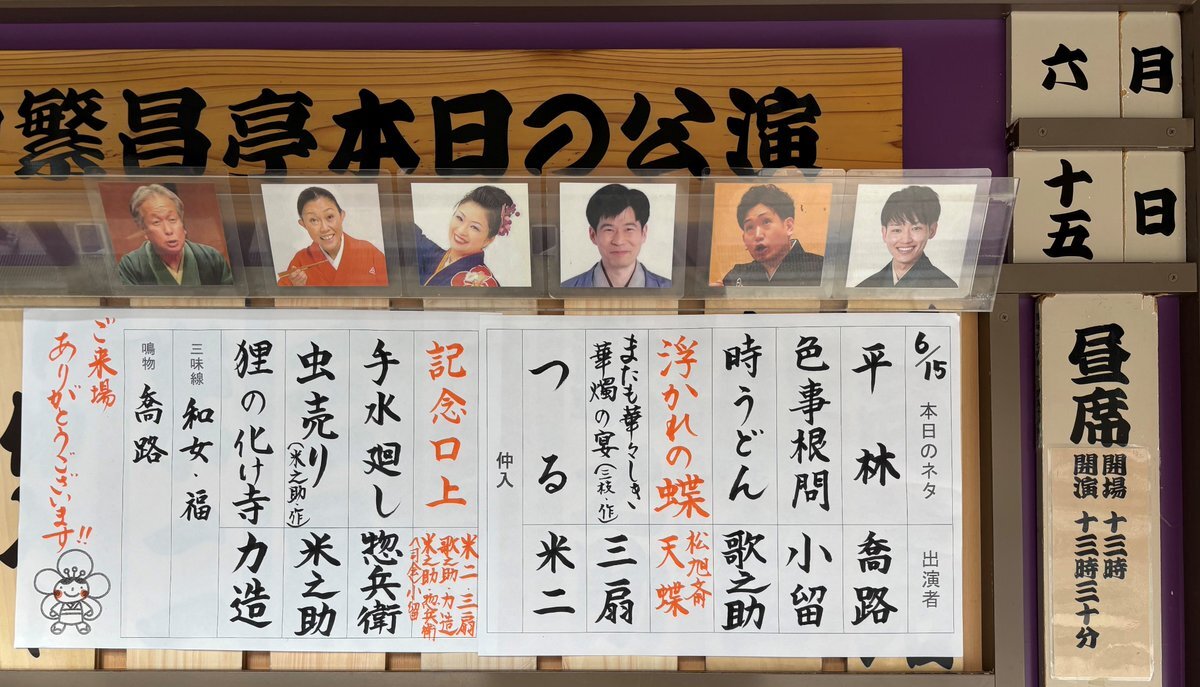 繁昌亭本日の公演
六月
十五日
昼席
開場 十三時
開演 十三時三十分
6/15 本日のネタ 出演者
平林 喬路
色事根問 小留
時うどん 歌之助
浮かれの蝶 松旭斎 天蝶
またも華々しき
華燭の宴(三枝・作) 三扇
つる 米二
仲入
記念口上 米二・三扇
歌之助・力造
米之助・惣兵衛
(司会)小留
手水廻し 惣兵衛
虫売り(米之助・作) 米之助
狸の化け寺 力造
三味線 和女・福
鳴物 喬路
ご来場
ありがとうございます!!